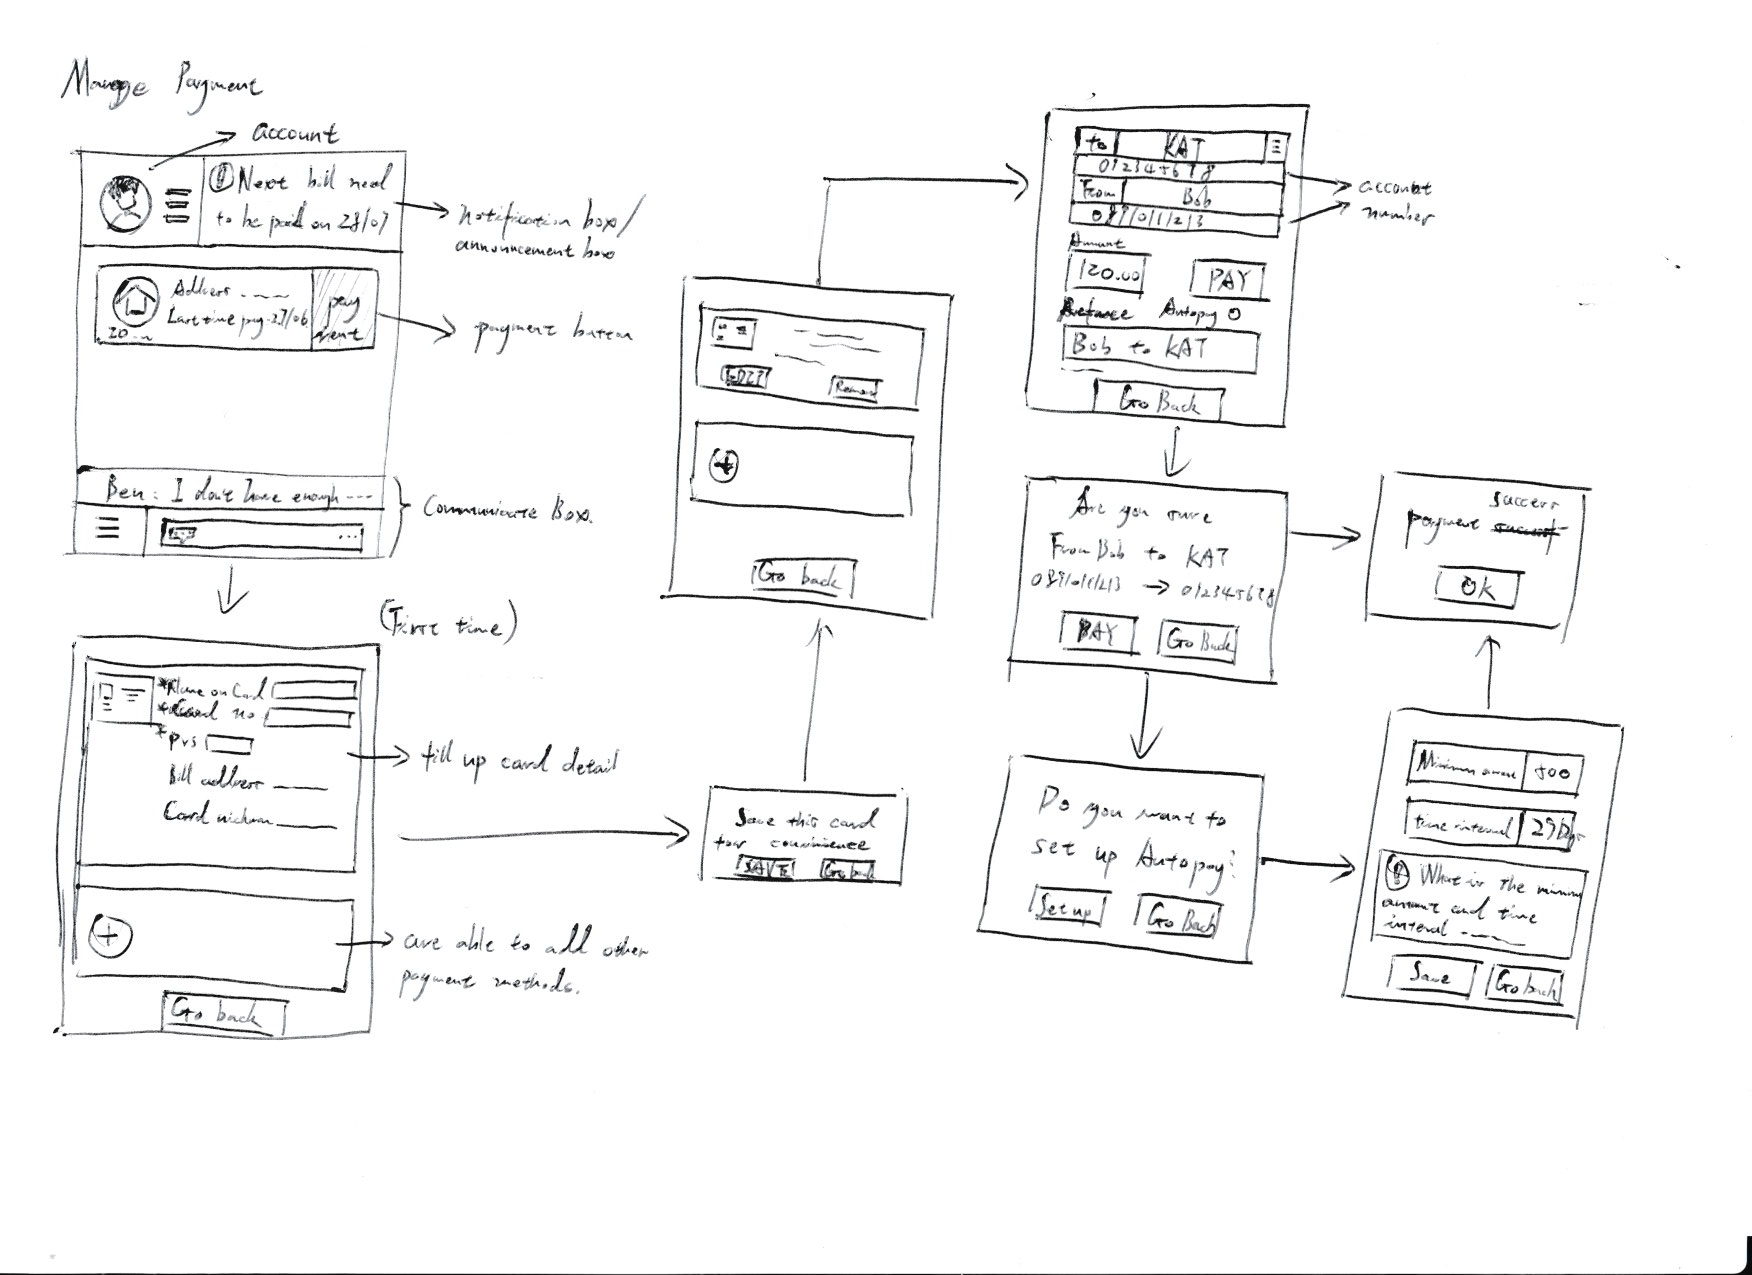 Manage Payment
account
Next bill need
to be paid on 28/07
notification box/
announcement box
Address
Last time pay 27/06
20
pay
ment
payment button
Ben: I don't have enough ---
Communicate Box.
(First time)
*Name on Card
*Card no
*
Bill address
Card
fill up card detail
are able to add other
payment methods.
Go back
Save this card
for convinience
SAVE
Go back
Go back
to
KAT
012345678
From
Bob
account
number
Amount
120.00
PAY
Autopay
Bob to KAT
Go Back
Are you sure
From Bob to KAT
→ 012345678
PAY
Go Back
success
payment
OK
Do you want to
set up Autopay?
Set up
Go Back
Minimum
500
time interval
What is the
amount and time
interval
Save
Go back